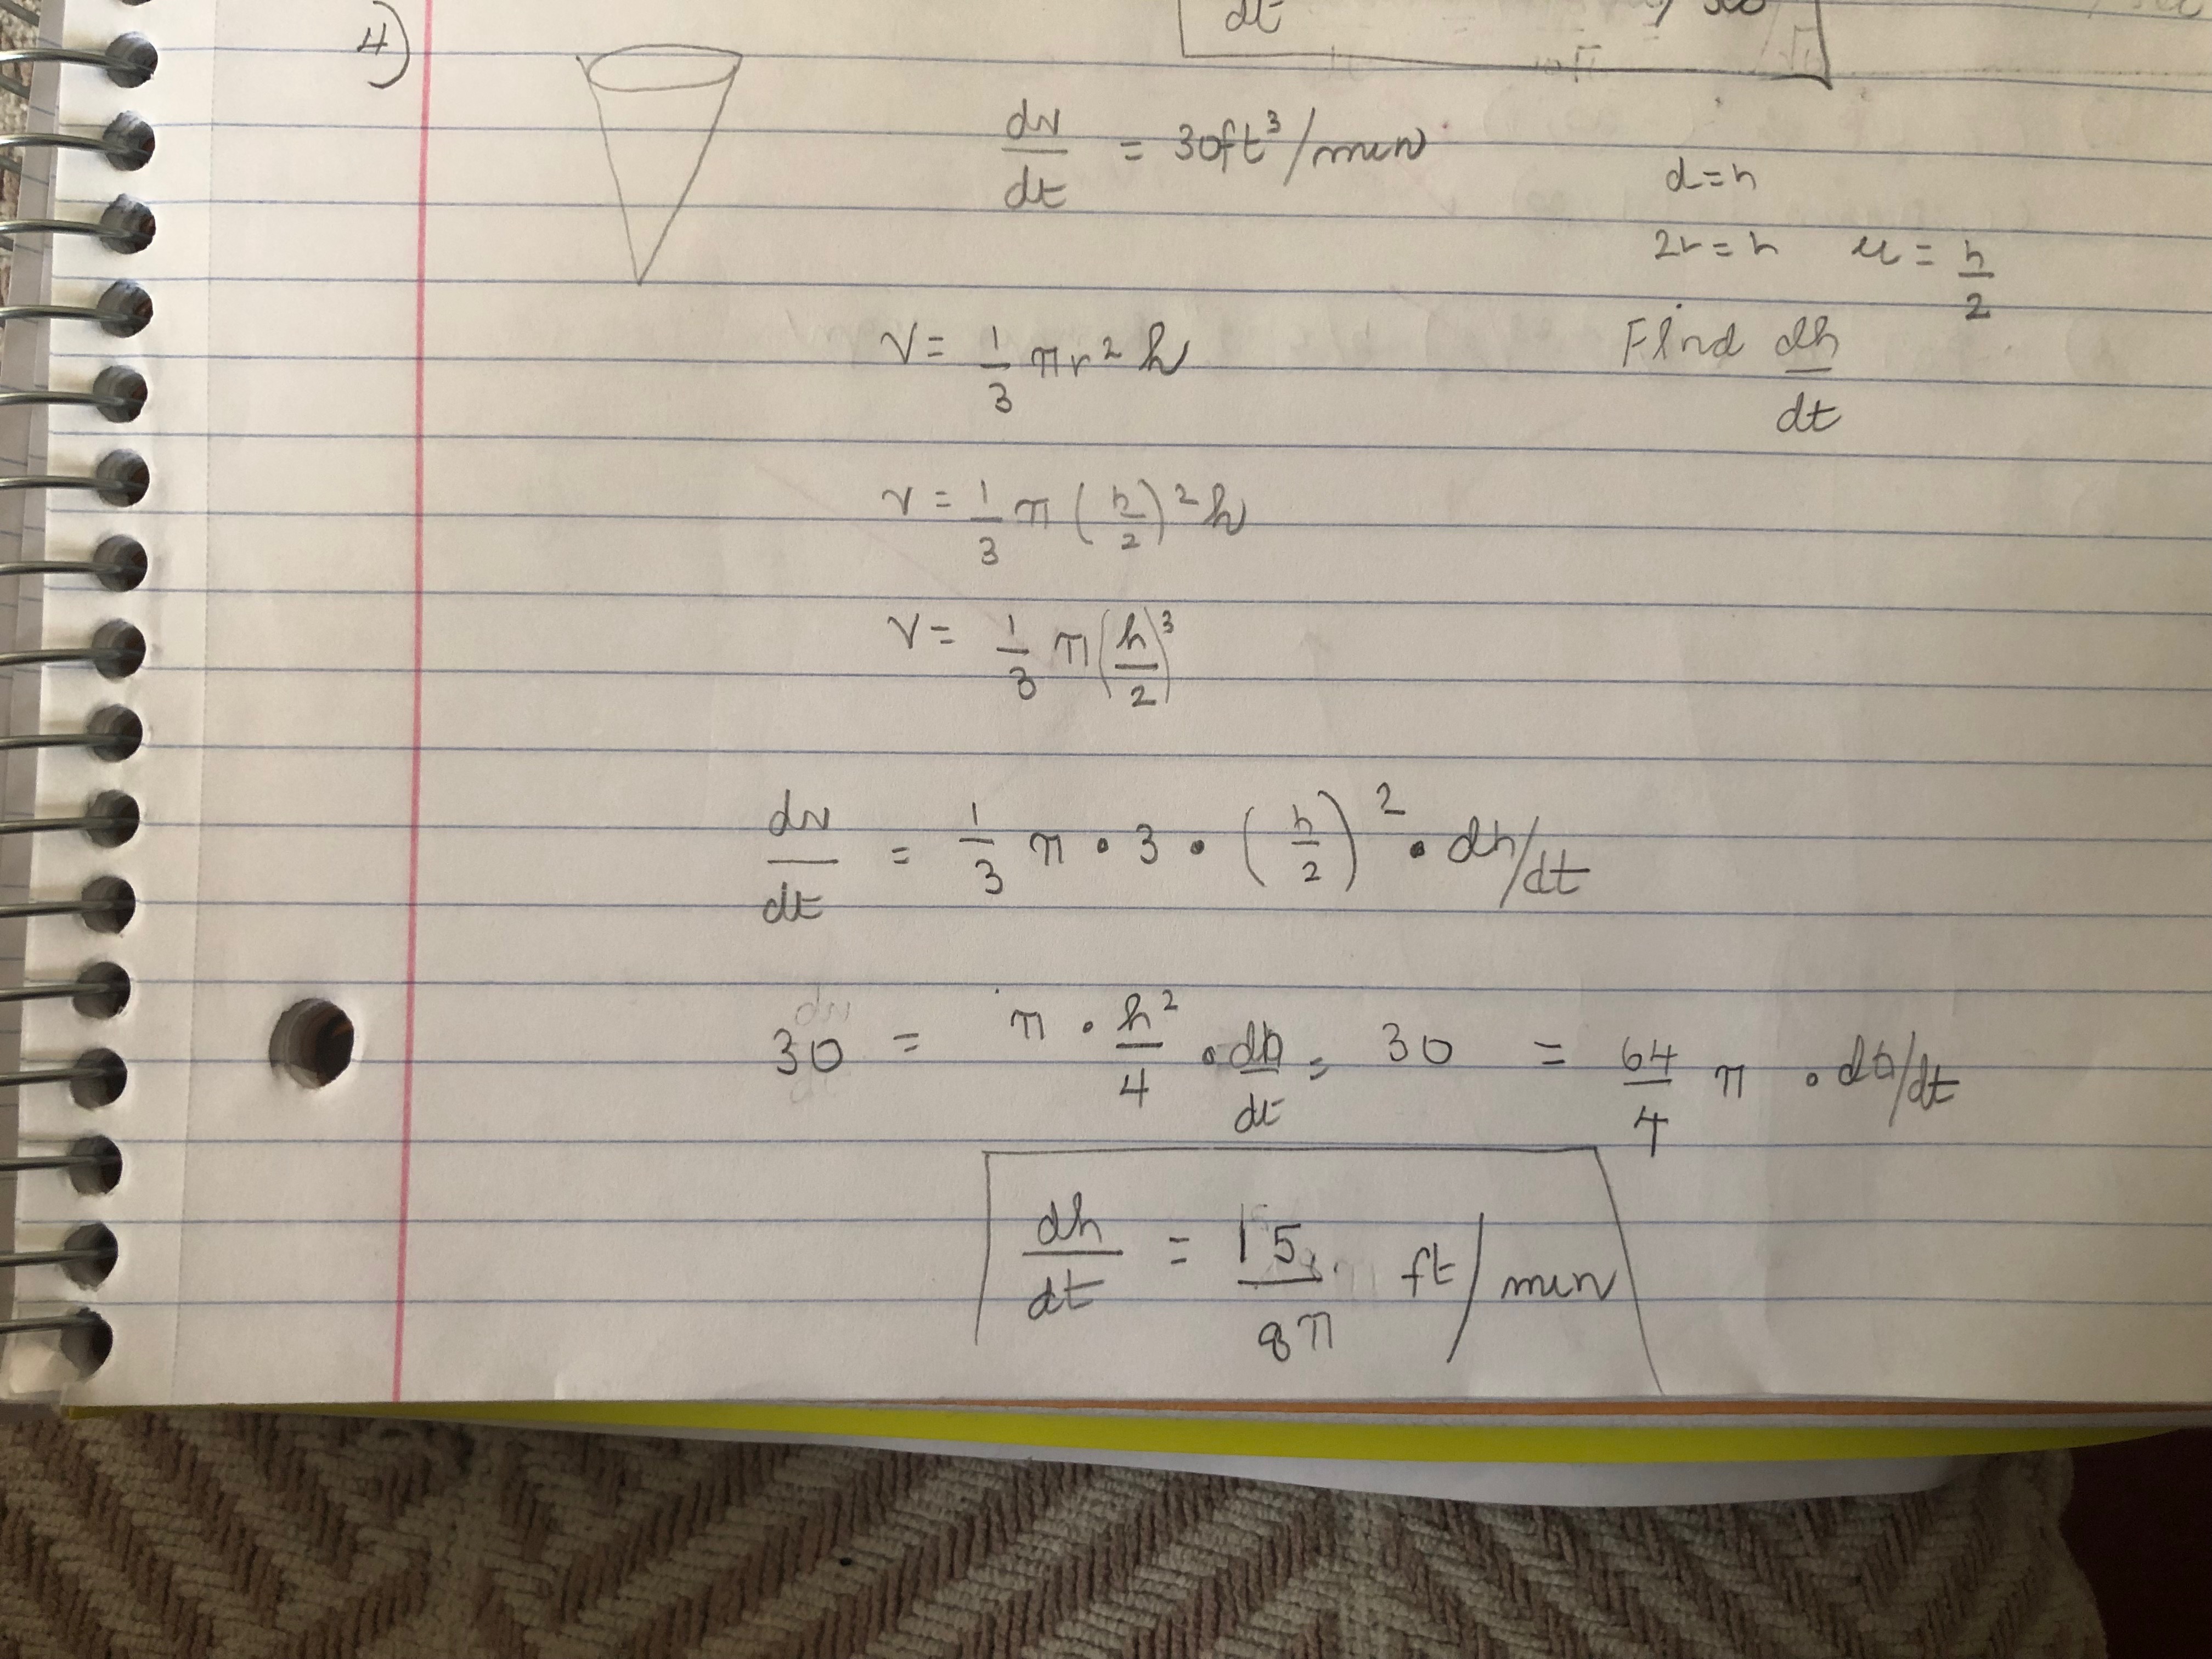 dt
4)
dv/dt = 30ft³/min d=h
2r=h r=h/2
V=1/3 πr²h Find dh/dt
V=1/3 π(h/2)²h
V=1/3 π(h/2)³
dv/dt = 1/3 π • 3 • (h/2)² • dh/dt
30 = π • h²/4 • dh/dt = 30 = 64/4 π • dh/dt
dh/dt = 15/8π ft/min